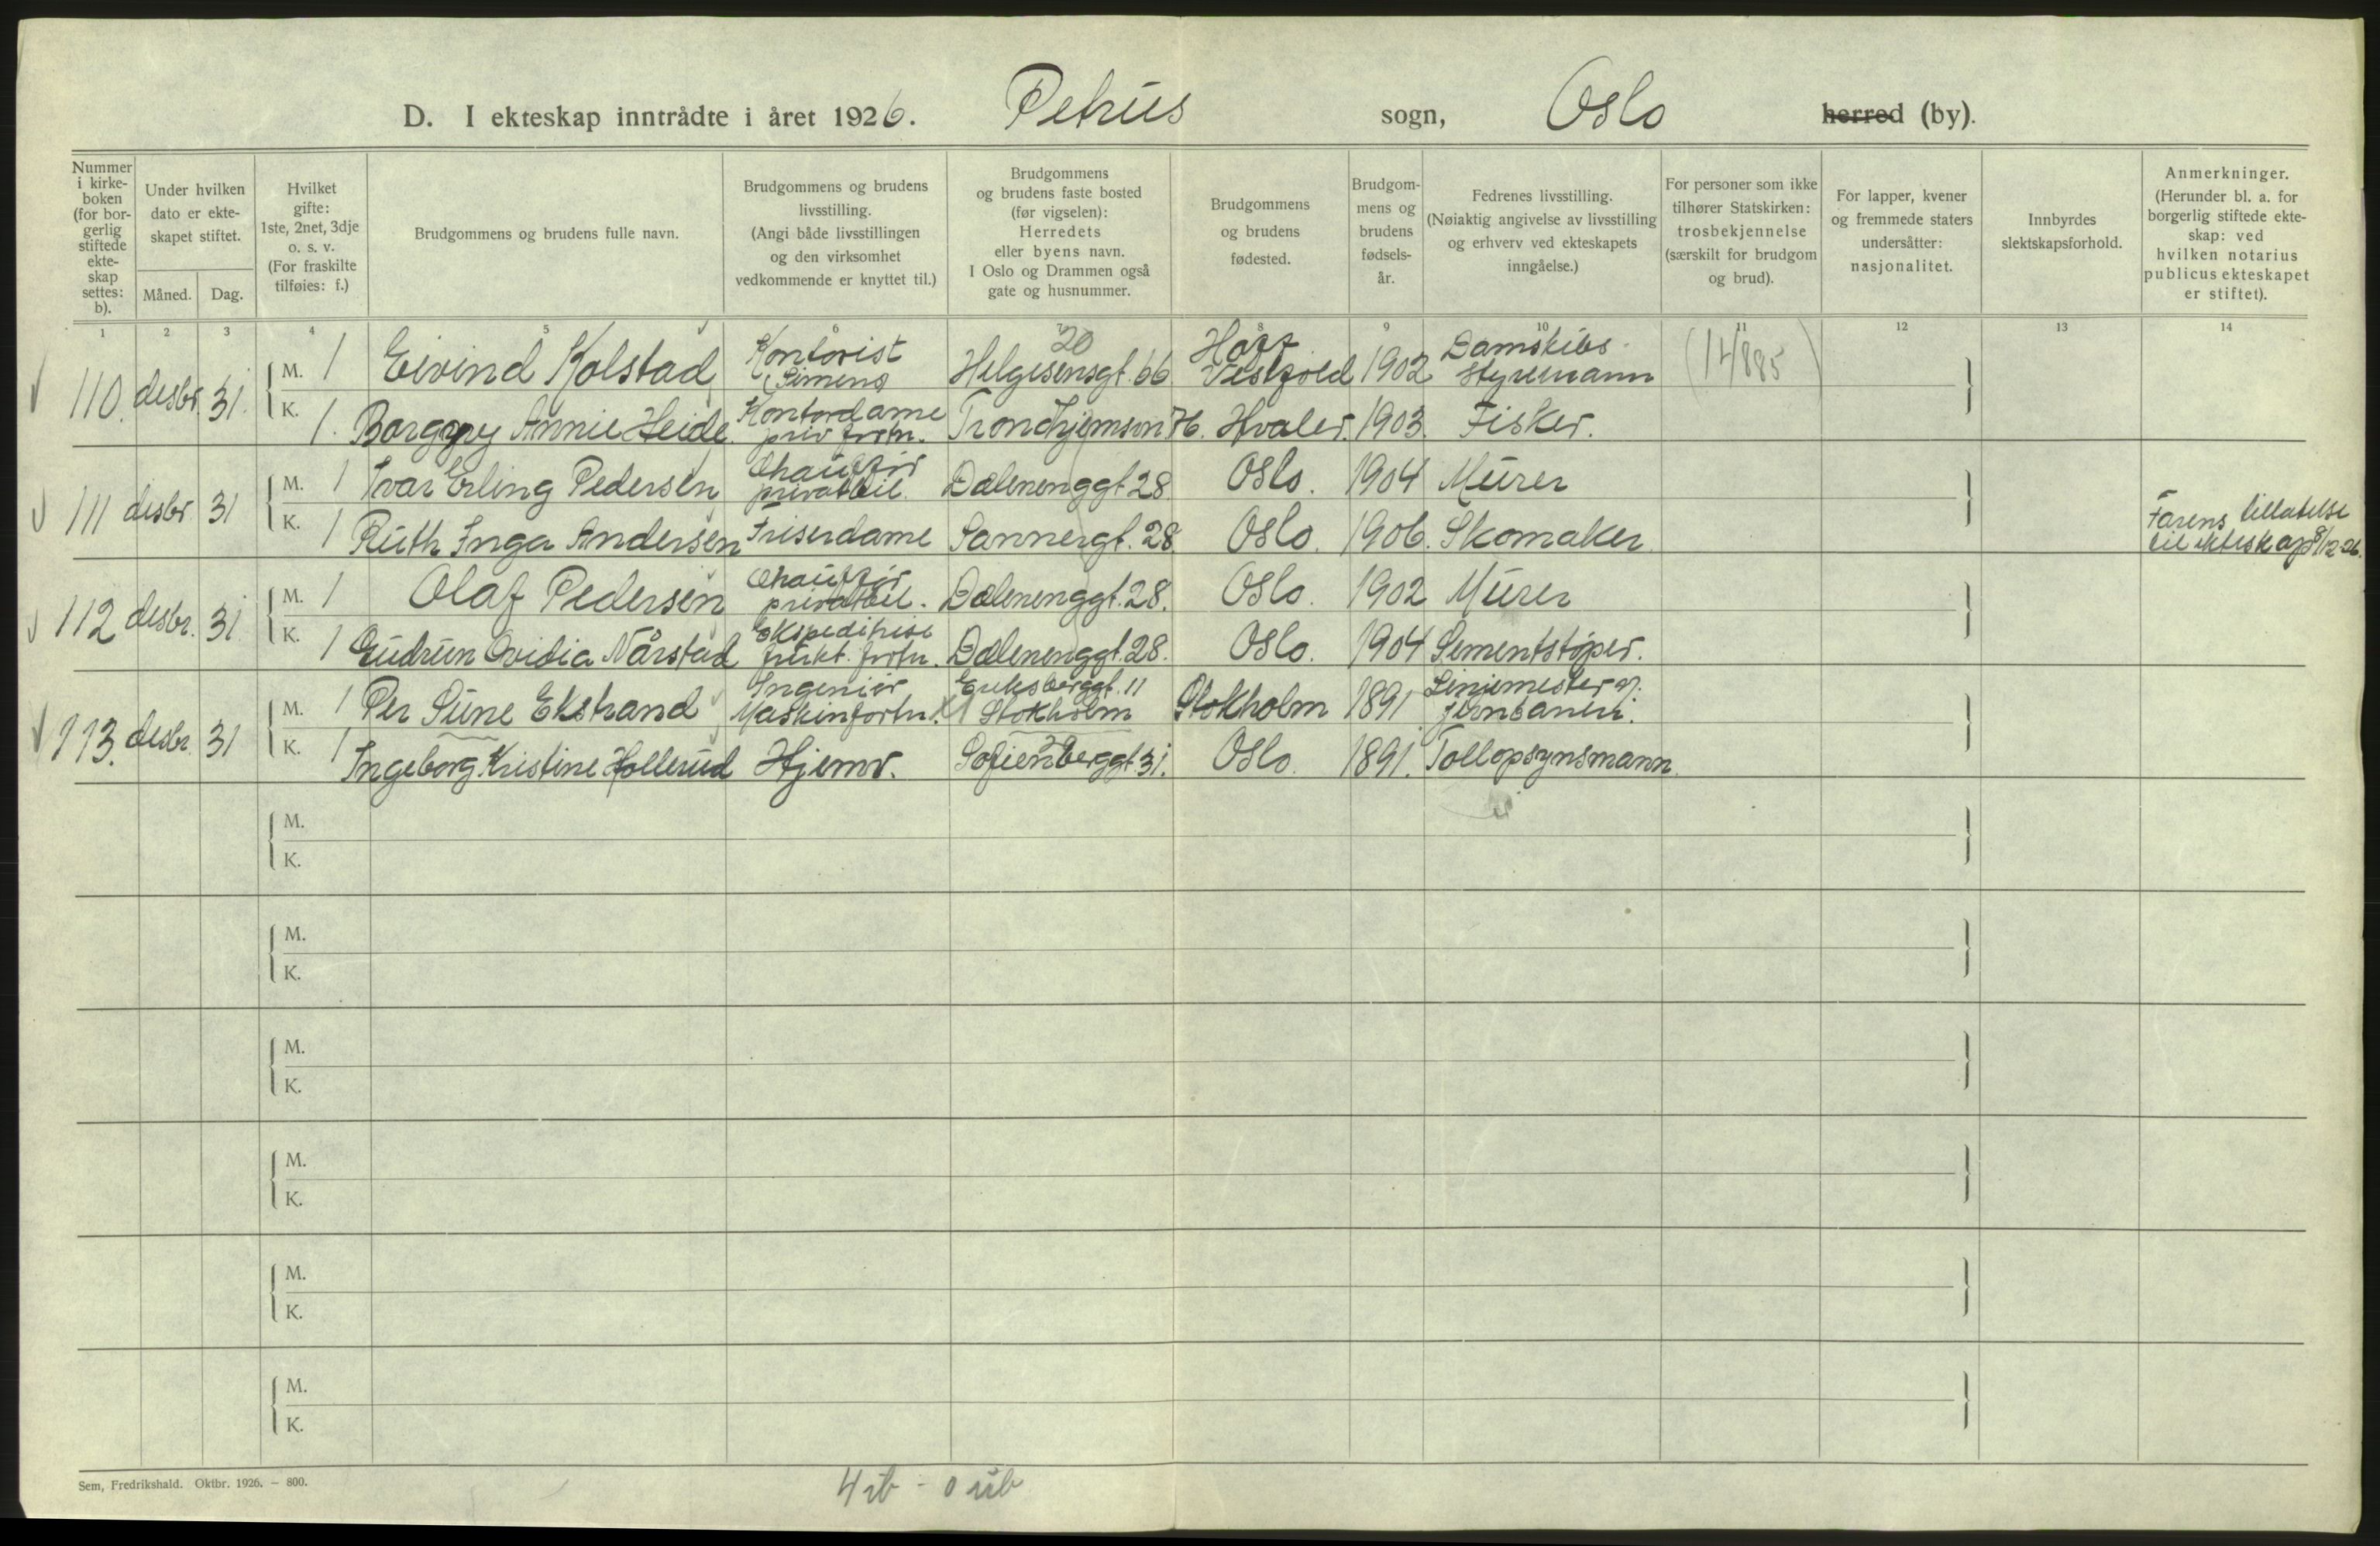 D. I ekteskap inntrådte i året 1926. Petrus sogn, Oslo herred (by).
Nummer i kirke-boken (for bor-gerlig stiftede ekte-skap settes: b).
Under hvilken dato er ekte-skapet stiftet.
Måned. Dag.
Hvilket gifte: 1ste, 2net, 3dje o. s. v. (For fraskilte tilføies: f.)
Brudgommens og brudens fulle navn.
Brudgommens og brudens livsstilling. (Angi både livsstillingen og den virksomhet vedkommende er knyttet til.)
Brudgommens og brudens faste bosted (før vigselen): Herredets eller byens navn. I Oslo og Drammen også gate og husnummer.
Brudgommens og brudens fødested.
Brudgom-mens og brudens fødsels-år.
Fedrenes livsstilling. (Nøiaktig angivelse av livsstilling og erhverv ved ekteskapets inngåelse.)
For personer som ikke tilhører Statskirken: trosbekjennelse (særskilt for brudgom og brud).
For lapper, kvener og fremmede staters undersåtter: nasjonalitet.
Innbyrdes slektskapsforhold.
Anmerkninger. (Herunder bl. a. for borgerlig stiftede ekte-skap: ved hvilken notarius publicus ekteskapet er stiftet).
1 2 3 4 5 6 7 8 9 10 11 12 13 14
110. desbr. 31. M. 1 Eivind Kolstad Kontorist Simens 20 Helgesensgt. 66 Vestfold 1902 Damskibs-styrmann
K. 1. Borgny Annie Heide. Kontordame priv. forr. 76. Hvaler. 1903. Fisker.
111 desbr 31 M. 1 Ivar Erling Pedersen Chauffør privatbil. Dælenenggt 28. Oslo. 1904 Murer
K. 1 Ruth Inga Andersen Friserdame Sannergt. 28 Oslo. 1906. Skomaker Farens tillatelse til ekteskap 8/12-26.
112 desbr. 31 M. 1 Olaf Pedersen Chauffør privatbil. Dælenenggt. 28. Oslo. 1902 Murer
K. 1 Gudrun Ovidia Nårstad Ekspeditrise frukt. forr. Dælenenggt. 28. Oslo. 1904 Sementstøper.
113. desbr. 31 M. 1 Per Sune Ekstrand Ingeniør Maskinforr. Eriksberggt. 11 Stokholm Stokholm 1891 Liniemester
K. 1 Ingeborg Kristine Hollerud Hjemv. Sofienberggt. 31. Oslo. 1891. Tollopsynsmann
M.
K.
M.
K.
M.
K.
M.
K.
M.
K.
M.
K.
Sem, Fredrikshald. Oktbr. 1926. — 800.